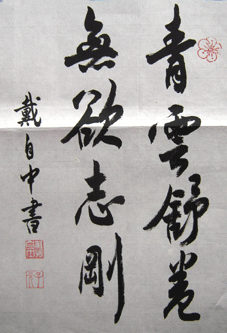 青雲舒卷
無欲志剛
戴自中書